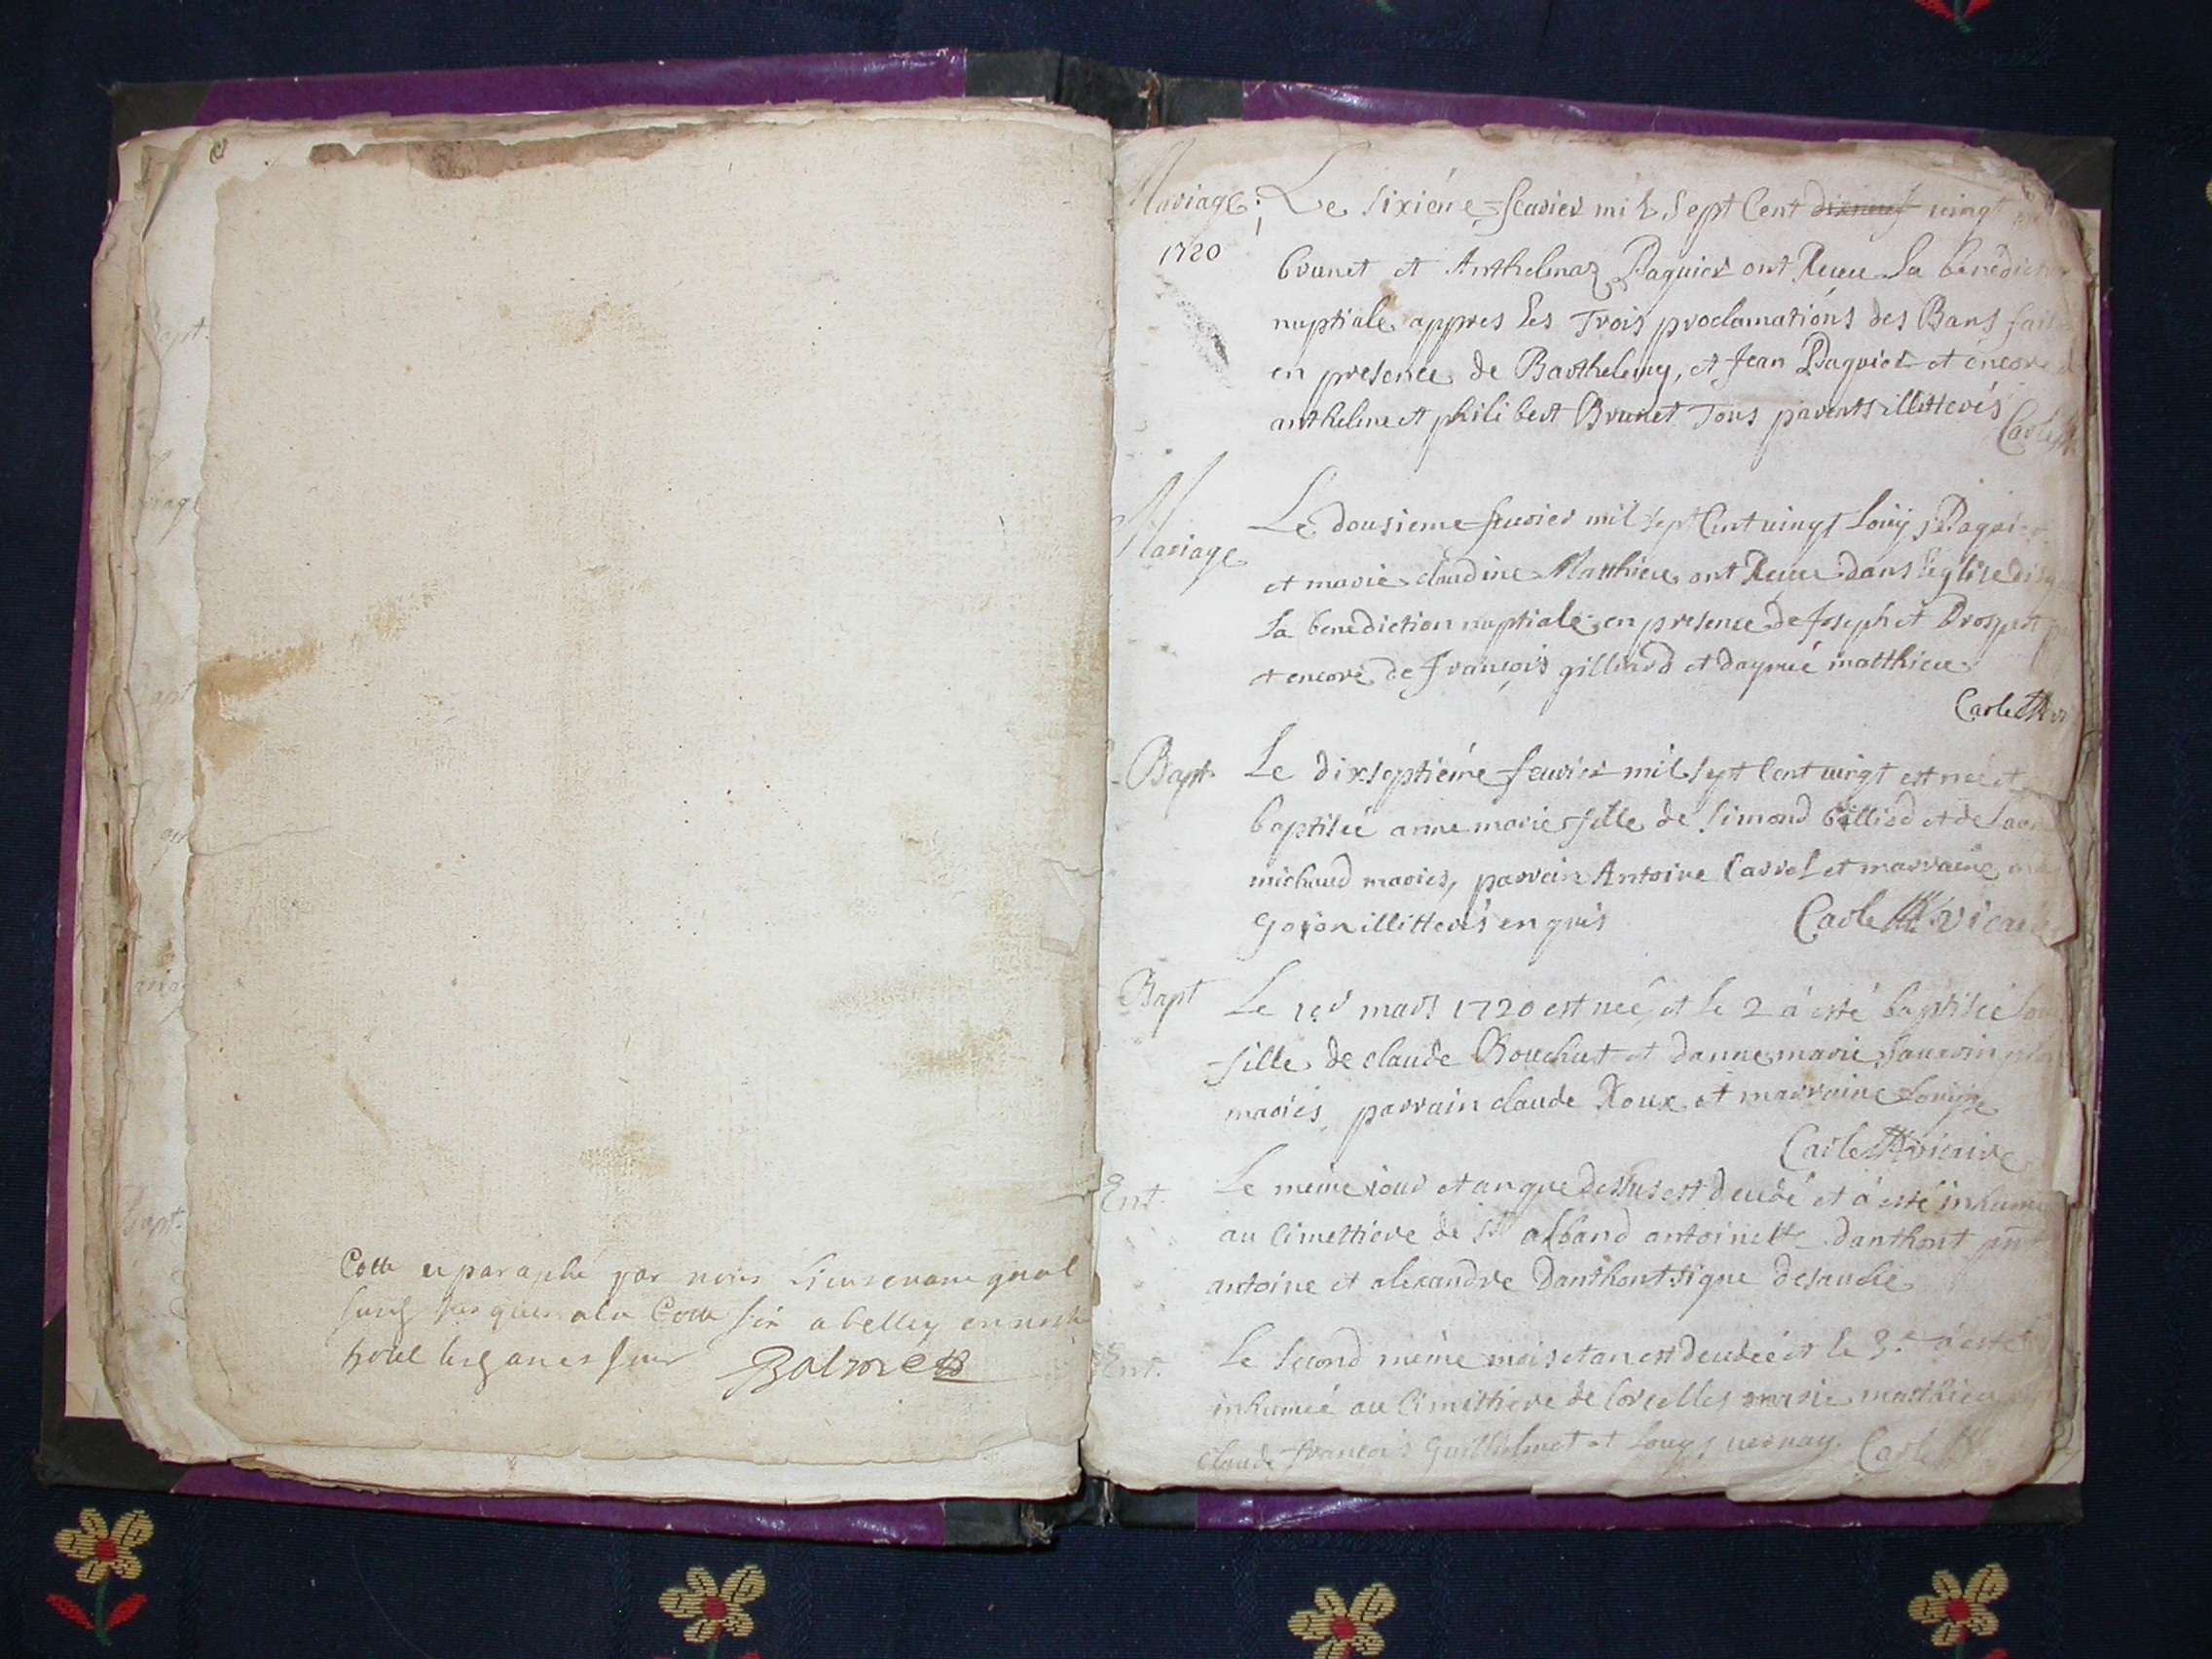 Cotté et paraphé par nous Lieutenant gnal
a la Cotte six a belley en nostre
hotel les an et jour Balme
Mariage
1720
Le sixiéme feurier mil sept Cent dixneuf uingt
brunet et Anthelmaz Paquier ont Receu La bénédiction
nuptiale appres les Trois proclamations des Bans faites
en presence de Barthelemy, et Jean Paquier et encore
anthelme et philibert Brunet Tous parents illitterés
Carlett
Mariage
Le dousieme feurier mil sept Cent uingt Loüy Paquier
et marie claudine Matthieu ont Receu dans l'église
La benediction nuptiale en presence de Joseph et Prospert
et encore de François gilliard et daymé matthieu
Carlett
Bapt
Le dixseptiéme feurier mil sept Cent uingt est née et
baptisée anne marie fille de Simond billiod et de
michaud mariés, parrain Antoine Carrel et marraine
Gojon illitterés enquis
Carlett vicaire
Bapt
Le 1er mars 1720 est née, et le 2 á esté baptisée
fille de claude Bouchut et danne marie
mariés, parrain claude Roux et marraine Louyse
Carlett vicaire
Ent.
Le méme iour et an que dessus est decedé et á esté inhumé
au Cimettiere de St alband antoinette danthont
antoine et alexandre Danthont signe
Ent.
Le second méme mois et an est decedée et le 3.e á esté
inhumée au Cimettiere de Corcelles marie matthieu
Claude françois Guillelmet et Louys uernay. Carlett